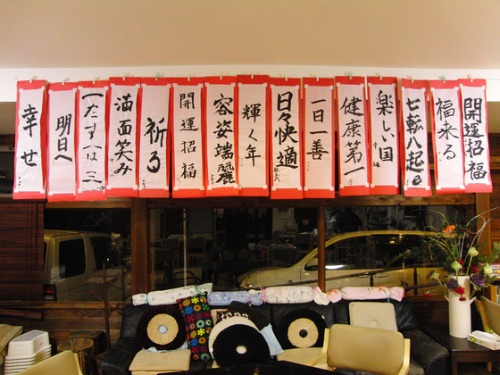 開運招福
福来る
七転八起
楽しい国
健康第一
一日一善
日々快適
輝く年
容姿端麗
開運招福
祈る
満面笑み
明日へ
幸せ